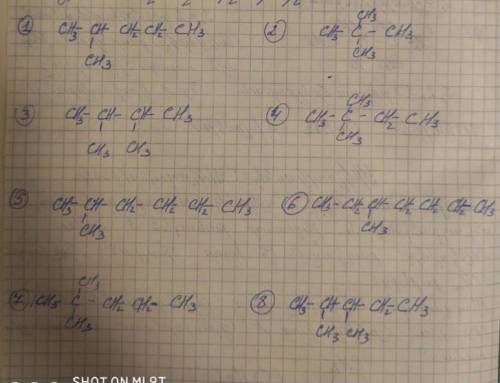 ① CH₃-CH-CH₂-CH₂-CH₃
CH₃
② CH₃
CH₃-C-CH₃
CH₃
③ CH₃-CH-CH-CH₃
CH₃ CH₃
④ CH₃
CH₃-C-CH₂-CH₃
CH₃
⑤ CH₃-CH-CH₂-CH₂-CH₂-CH₃
CH₃
⑥ CH₃-CH₂-CH-CH₂-CH₂-CH₂-CH₃
CH₃
⑦ CH₃
CH₃-C-CH₂-CH₂-CH₃
CH₃
⑧ CH₃-CH-CH-CH₂-CH₃
CH₃ CH₃
SHOT ON MI 9T